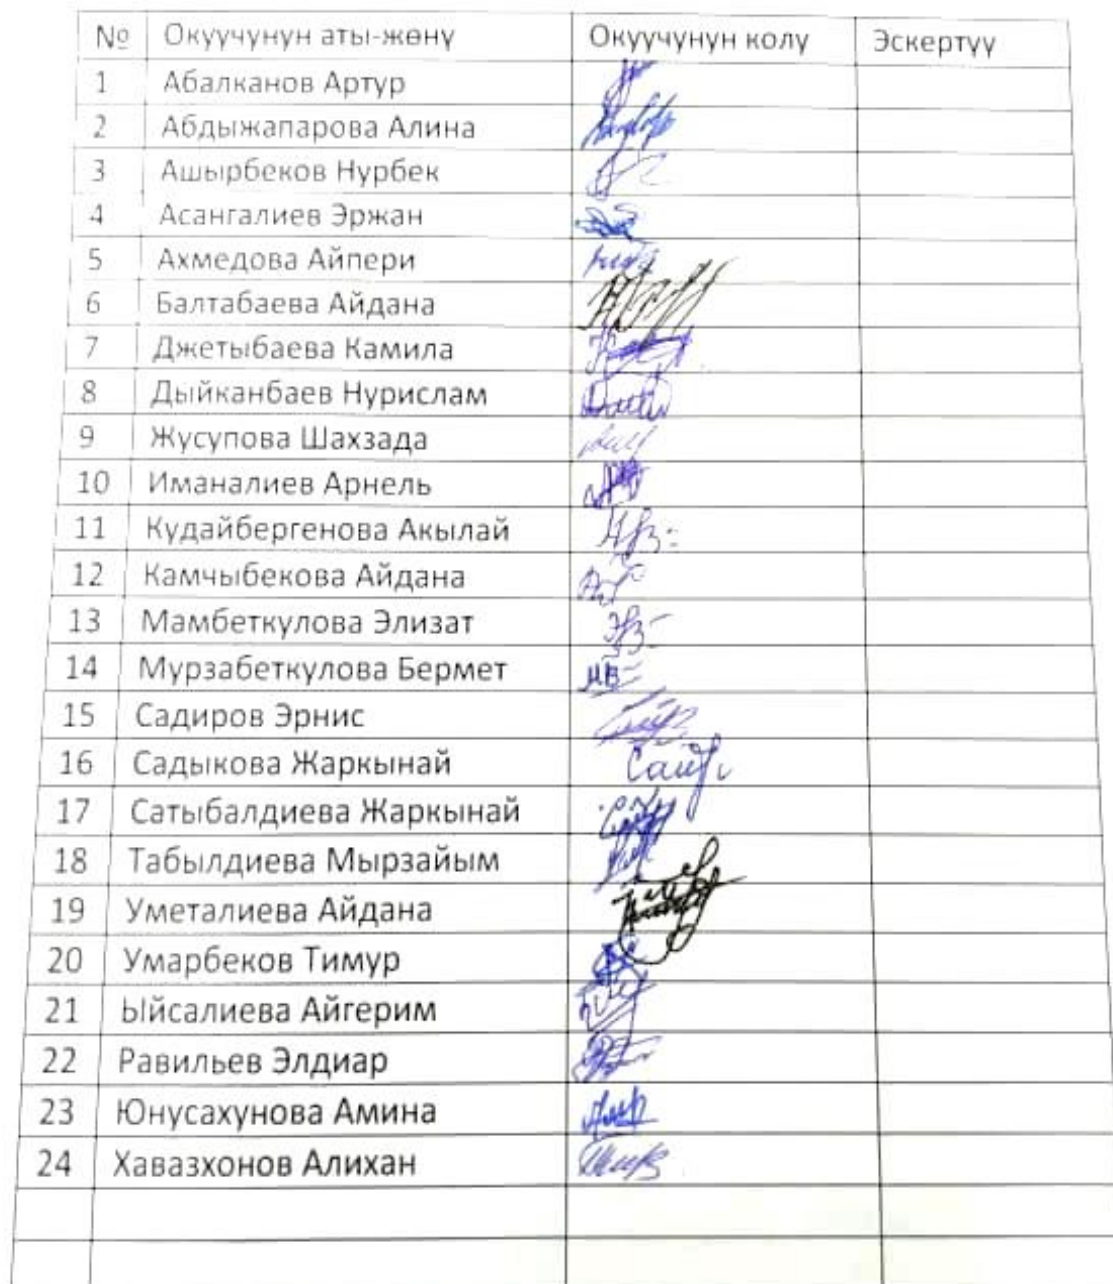 № Окуучунун аты-жөнү Окуучунун колу Эскертүү
1 Абалканов Артур
2 Абдыжапарова Алина
3 Ашырбеков Нурбек
4 Асангалиев Эржан
5 Ахмедова Айпери
6 Балтабаева Айдана
7 Джетыбаева Камила
8 Дыйканбаев Нурислам
9 Жусупова Шахзада
10 Иманалиев Арнель
11 Кудайбергенова Акылай
12 Камчыбекова Айдана
13 Мамбеткулова Элизат
14 Мурзабеткулова Бермет
15 Садиров Эрнис
16 Садыкова Жаркынай
17 Сатыбалдиева Жаркынай
18 Табылдиева Мырзайым
19 Уметалиева Айдана
20 Умарбеков Тимур
21 Ыйсалиева Айгерим
22 Равильев Элдиар
23 Юнусахунова Амина
24 Хавазхонов Алихан